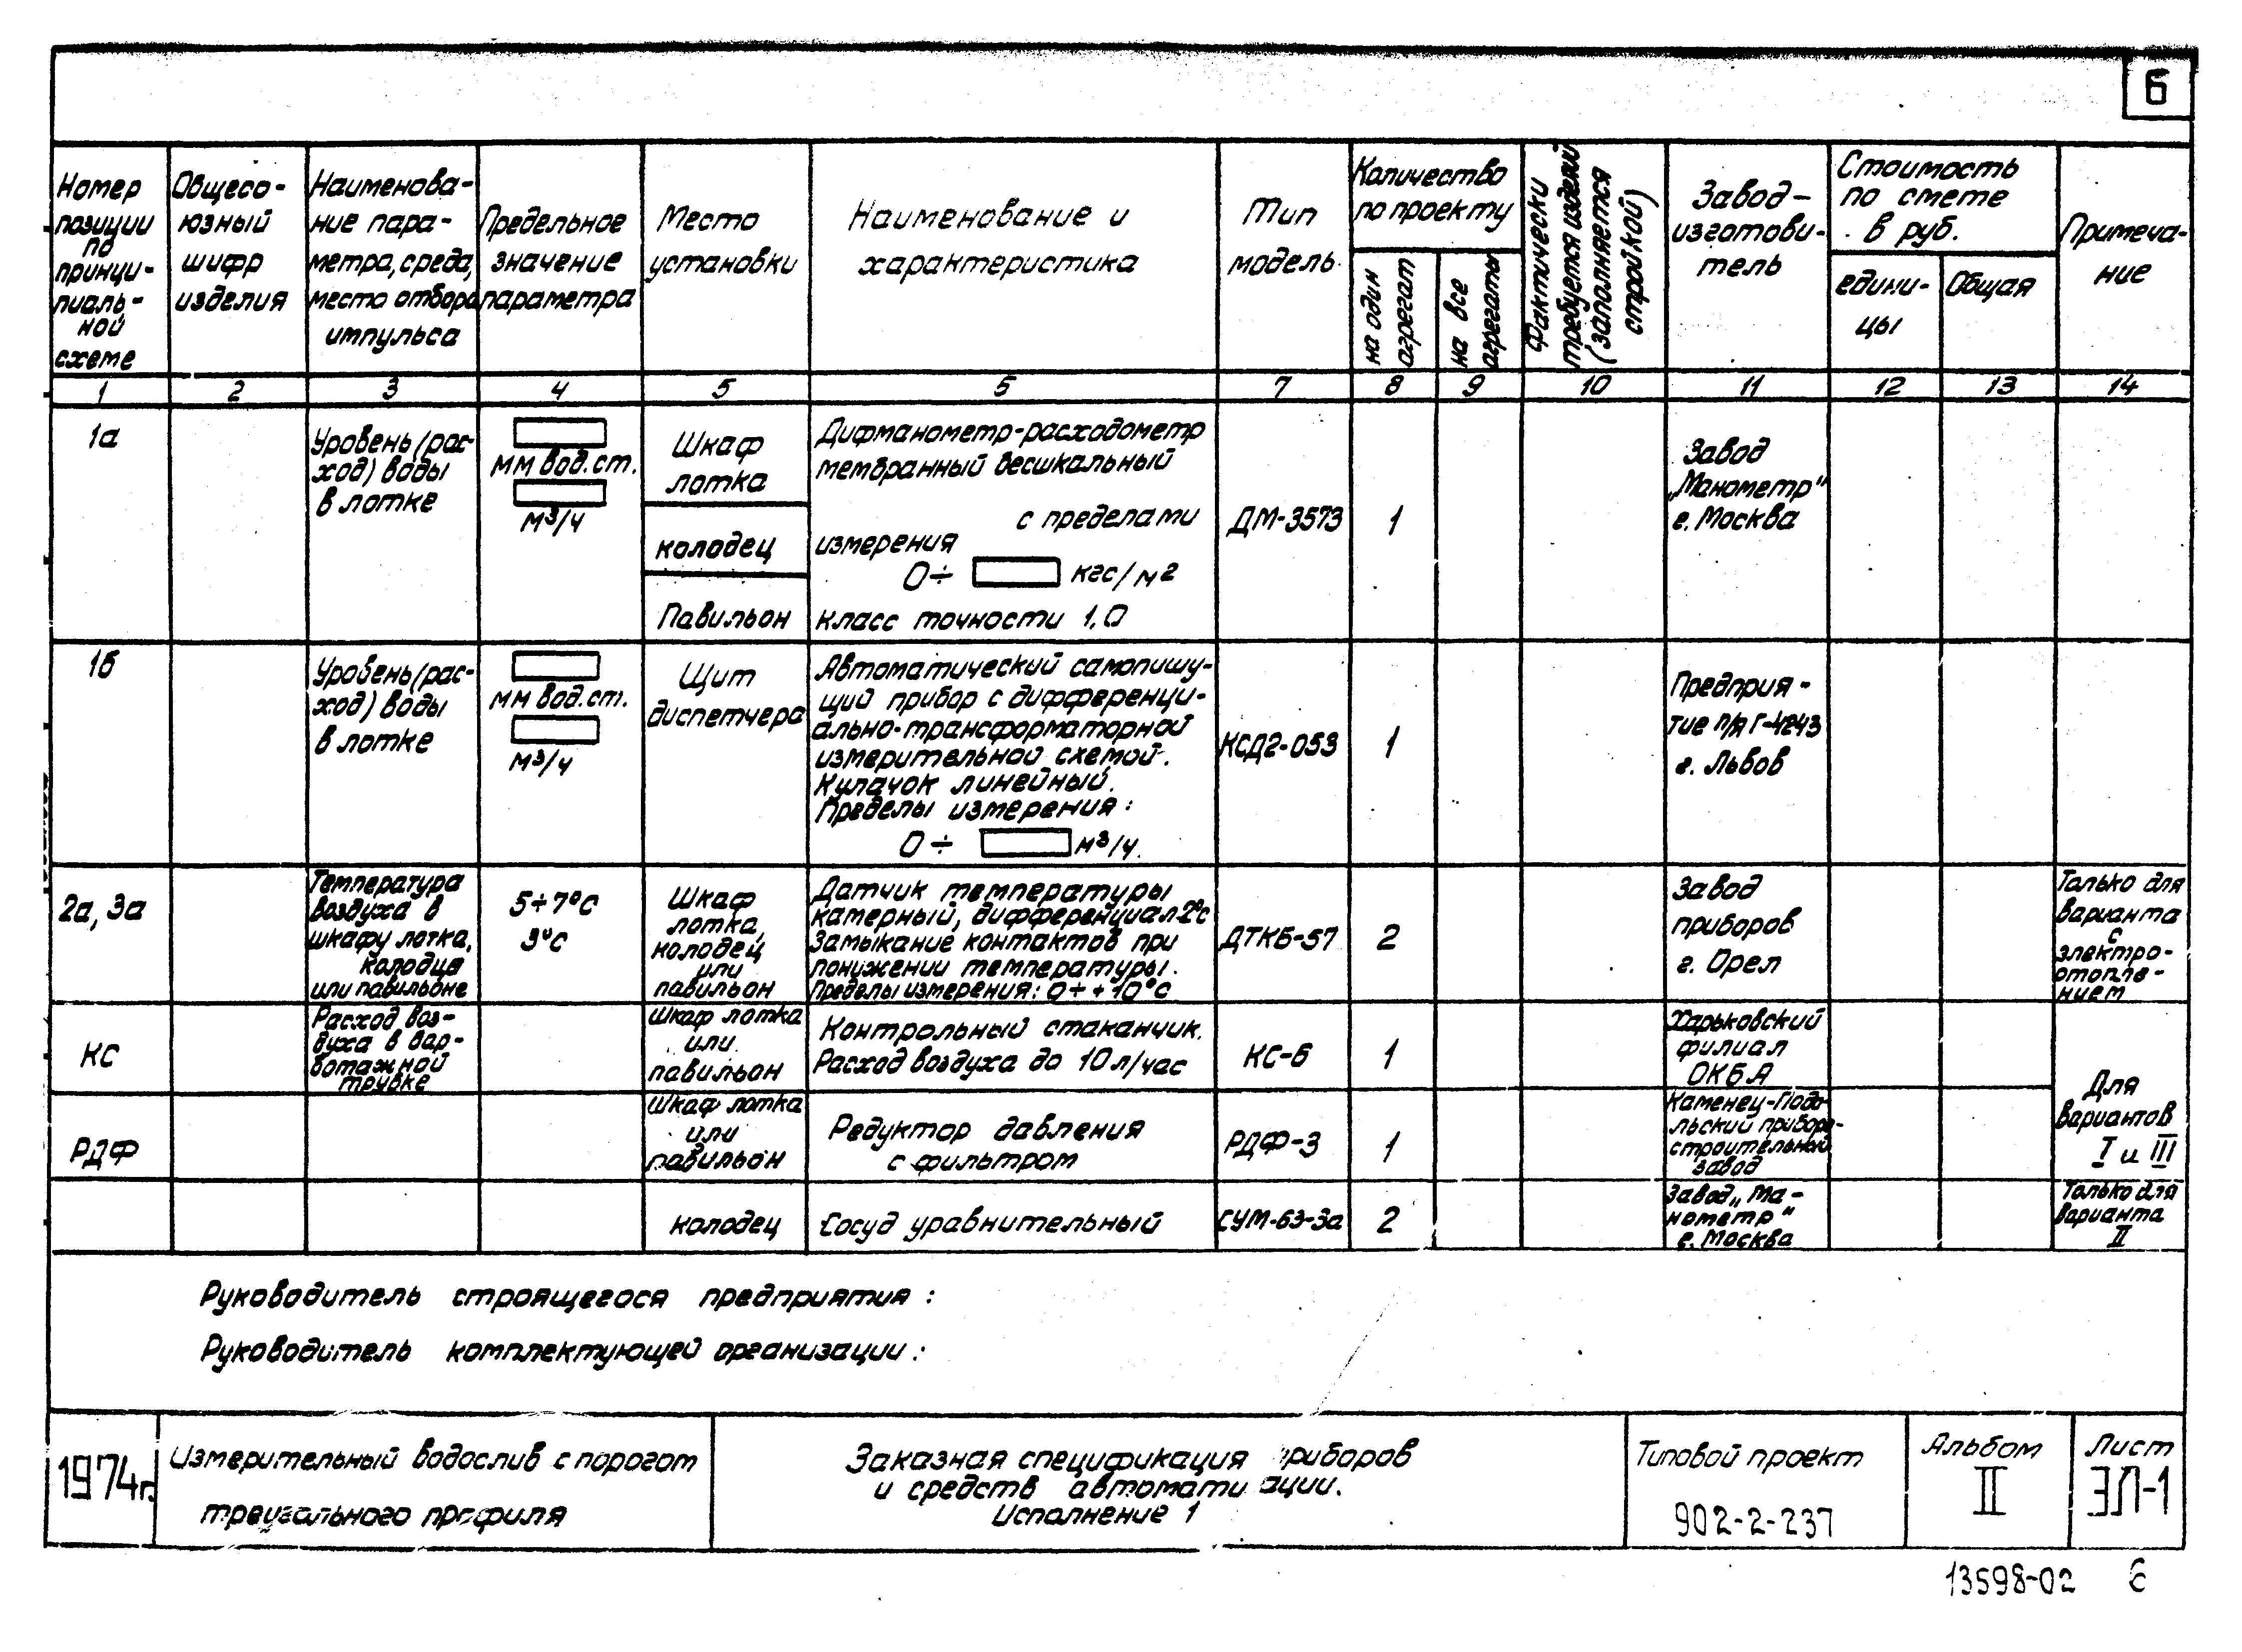 6
Номер
позиции
по
принци-
пиаль-
ной
схеме
Общесо-
юзный
шифр
изделия
Наименова-
ние пара-
метра, среда,
место отбора
импульса
Предельное
значение
параметра
Место
установки
Наименование и
характеристика
Тип
модель
Количество
по проекту
на один
агрегат
на все
агрегаты
Фактически
требуется изделий
(заполняется
стройкой)
Завод-
изготови-
тель
Стоимость
по смете
в руб.
едини-
цы
Общая
Примеча-
ние
1 2 3 4 5 6 7 8 9 10 11 12 13 14
1а
Уровень (рас-
ход) воды
в лотке
мм вод. ст.
м³/ч
Шкаф
лотка
колодец
Павильон
Дифманометр-расходометр
мембранный бесшкальный
с пределами
измерения
0÷ кгс/м2
класс точности 1,0
ДМ-3573
1
Завод
„Манометр"
г. Москва
1б
Уровень (рас-
ход) воды
в лотке
мм вод. ст.
м³/ч
Щит
диспетчера
Автоматический самопишу-
щий прибор с дифференци-
ально-трансформаторной
измерительной схемой.
Кулачок линейный.
Пределы измерения:
0÷ м³/ч.
КСД2-053
1
Предприя-
тие п/я Г-4243
г. Львов
2а, 3а
Температура
воздуха в
шкафу лотка,
колодце
или павильоне
5÷7°С
3°С
Шкаф
лотка,
колодец
или
павильон
Датчик температуры
камерный, дифференциал-2°с
Замыкание контактов при
понижении температуры.
Пределы измерения: 0÷+10°С
ДТКБ-57
2
Завод
приборов
г. Орел
Только для
варианта
с
электро-
отопле-
нием
КС
Расход воз-
духа в бар-
ботажной
трубке
Шкаф лотка
или
павильон
Контрольный стаканчик.
Расход воздуха до 10 л/час
КС-6
1
Харьковский
филиал
ОКБА
Для
вариантов
I и III
РДФ
Шкаф лотка
или
павильон
Редуктор давления
с фильтром
РДФ-3
1
Каменец-Подо-
льский приборо-
строительный
завод
колодец
Сосуд уравнительный
СУМ-63-3а
2
Завод „Ма-
нометр"
г. Москва
Только для
варианта
II
Руководитель строящегося предприятия :
Руководитель комплектующей организации :
1974г.
Измерительный водослив с порогом
треугольного профиля
Заказная спецификация приборов
и средств автоматизации.
Исполнение 1
Типовой проект
902-2-237
Альбом
II
Лист
ЭЛ-1
13598-02 6